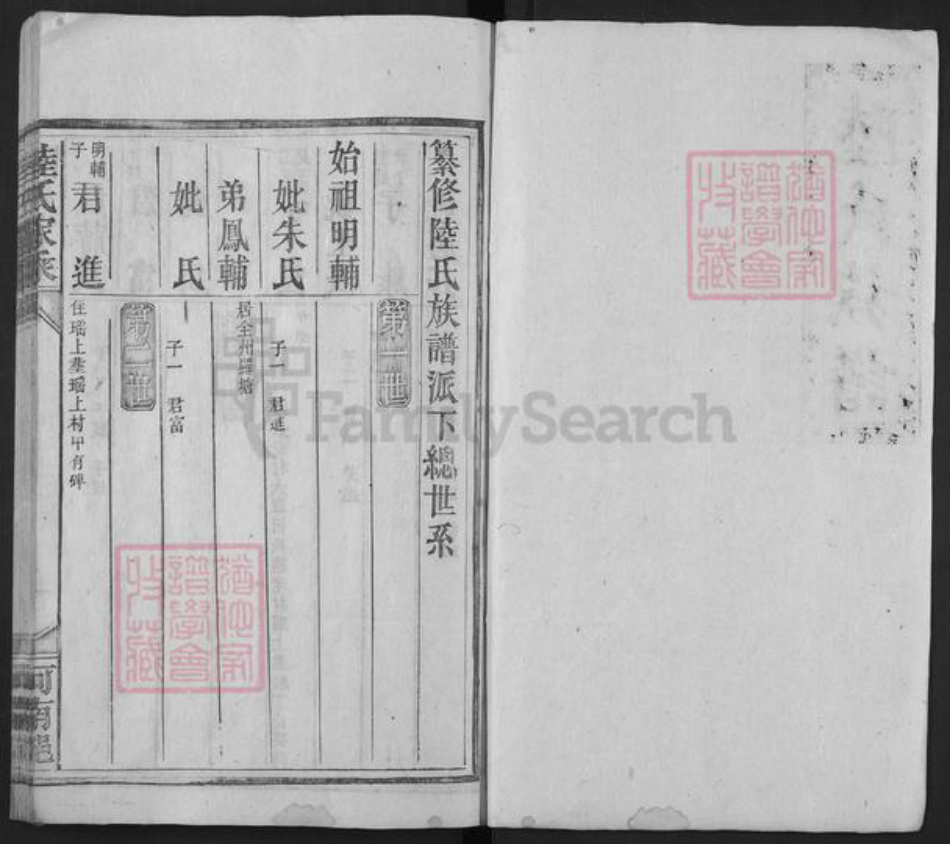 纂修陸氏族譜派下總世系
第一世
始祖明輔
妣朱氏
子一 君進
弟鳳輔
居全州羅塘
妣 氏
子一 君富
第二世
明輔子 君進
住瑶上 瑶上村甲 碑
陸氏家乘
河南
譜學會
收藏
譜學會
收藏
FamilySearch